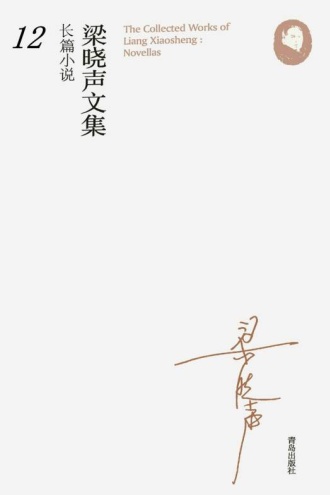 12
长篇小说
梁晓声文集
The Collected Works of
Liang Xiaosheng :
Novellas
梁晓声
青岛出版社